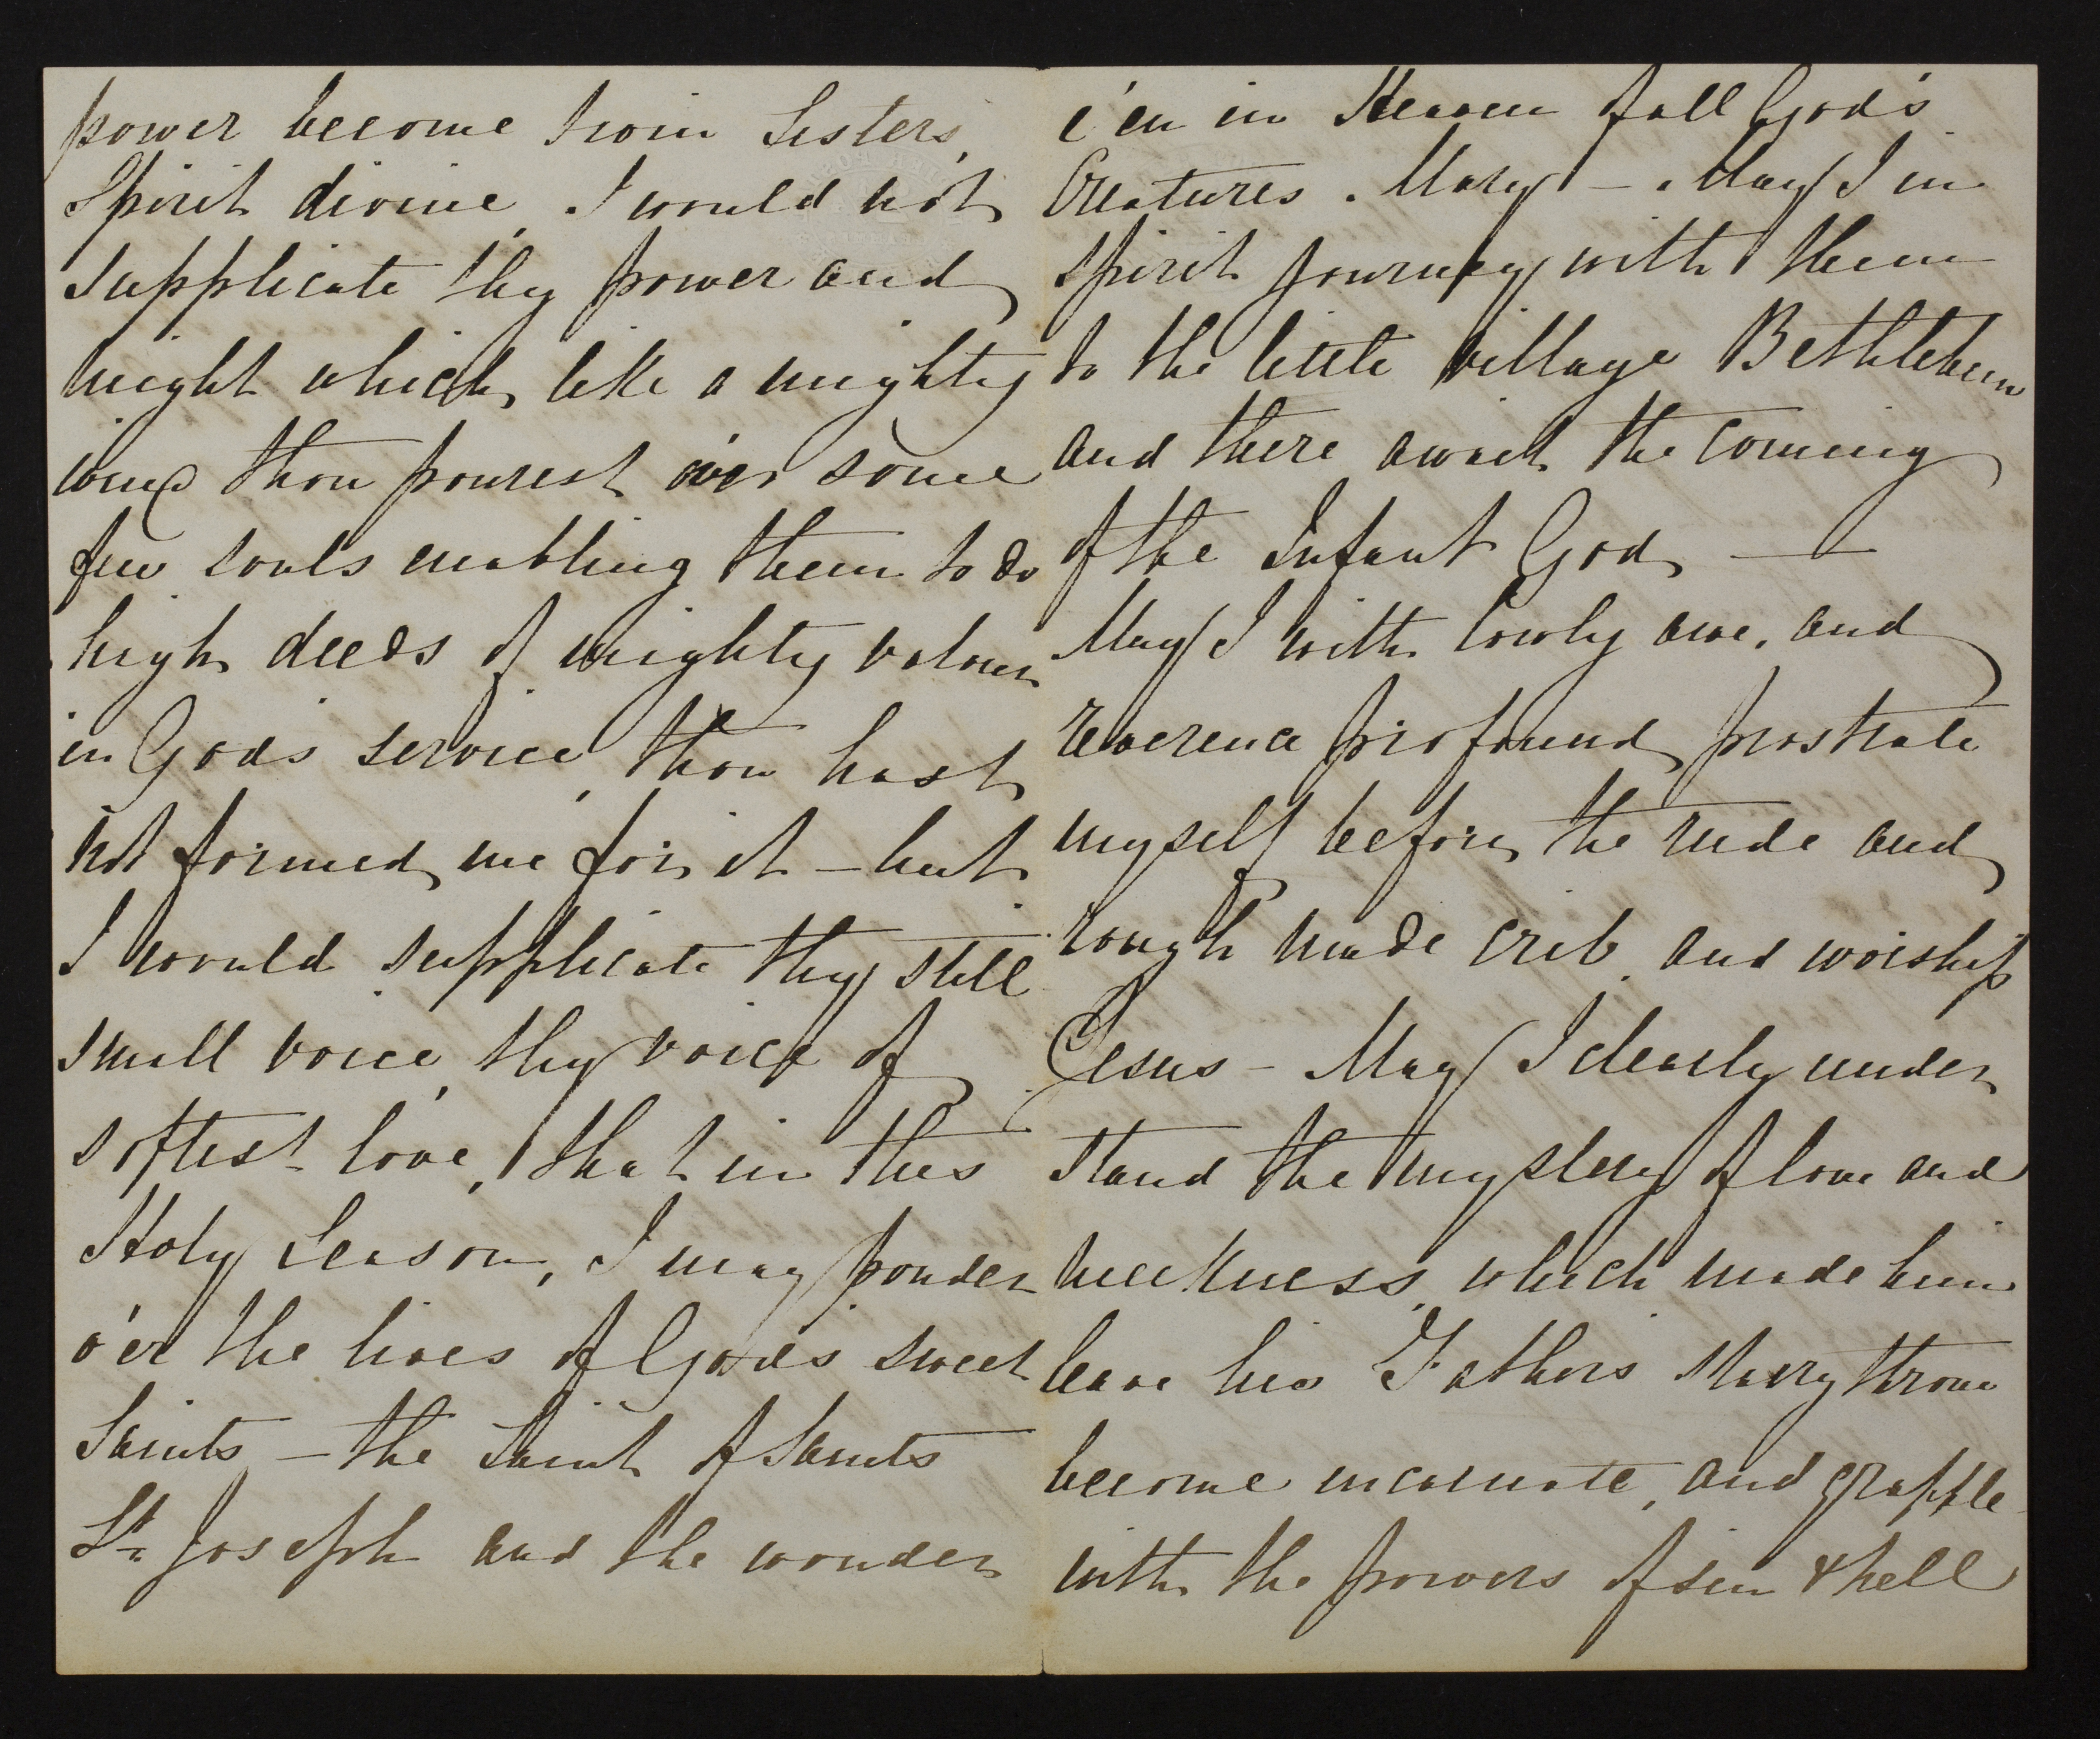 power become twin Sisters,
Spirit divine, I would not
supplicate thy power and
might which, like a mighty
wind thou pourest o'er some
few souls enabling them to do
high deeds of mighty valour
in Gods service, thou hast
not formed me for it – but
I would supplicate thy still
small voice, thy voice of
softest love, that in this
Holy Season, I may ponder
o'er the lives of God's sweet
Saints – the Saint of Saints
St. Joseph and the wonder
e'en in Heaven of all God's
Creatures. Mary – May I in
spirit journey with them
to the little village Bethlehem
and there await the coming
of the Infant God, —
May I with lowly awe, and
reverence profound, prostrate
myself before the rude and
rough made crib, and worship
Jesus – May I clearly under
stand the mystery of love and
meekness, which made him
leave his Father's starry throne
become incarnate, and grapple
with the powers of sin & hell